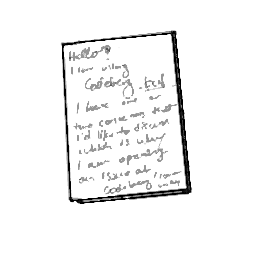 Hello
I am using
Codeberg
I have one or
two concerns that
I'd like to discuss
which is why
I am opening
an issue at
Codeberg